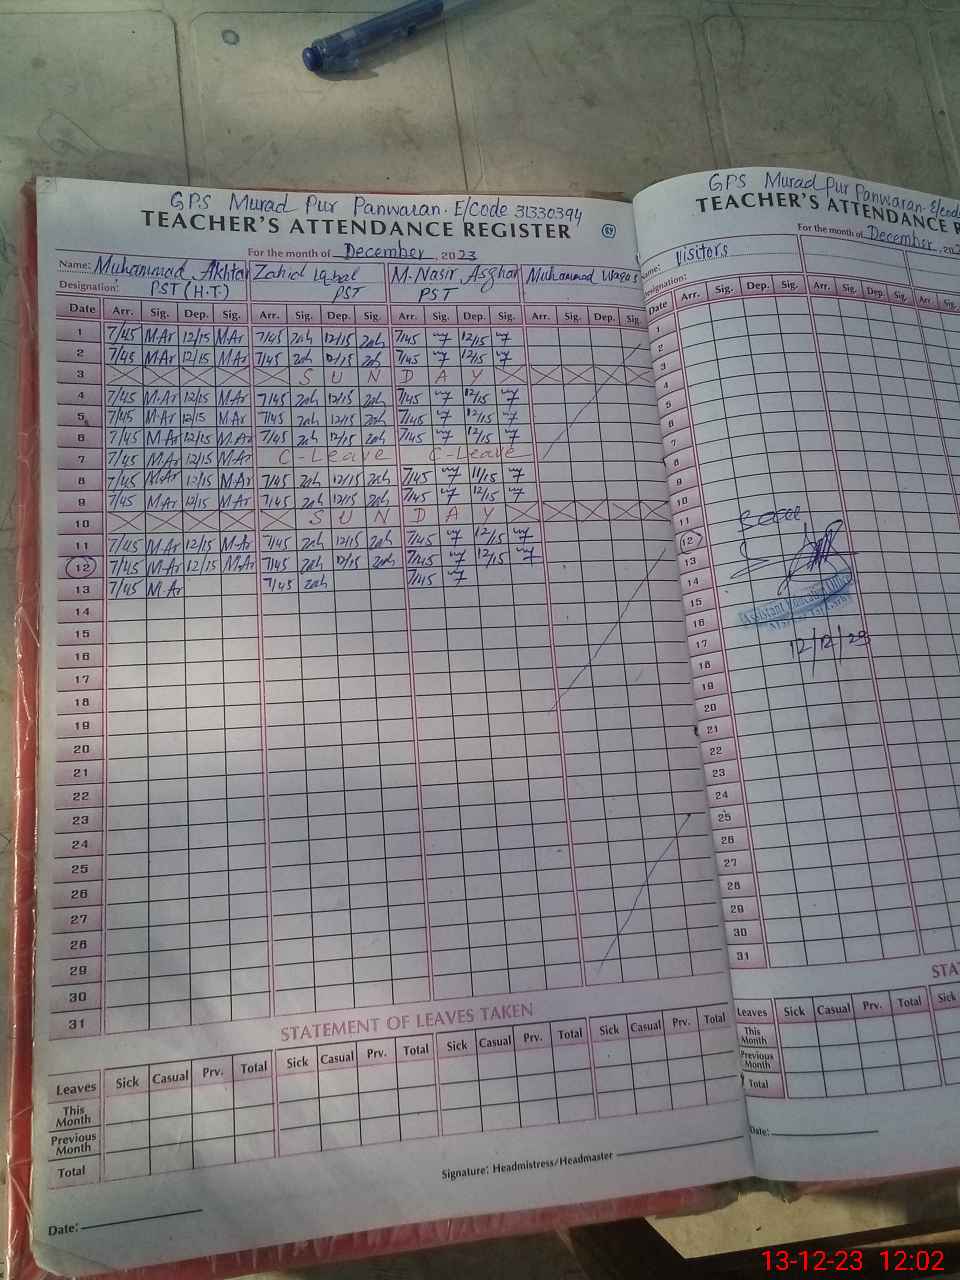 GPS Murad Pur Panwaran. E/Code 31330394
TEACHER'S ATTENDANCE REGISTER
For the month of December, 2023
Name: Muhammad Akhtar Zahid Iqbal M. Nasir Asghar Muhammad Waqas
Designation: PST (H.T.) PST PST
Date Arr. Sig. Dep. Sig. Arr. Sig. Dep. Sig. Arr. Sig. Dep. Sig. Arr. Sig. Dep. Sig.
1 7/45 M.Ar 12/15 M.Ar 7/45 zah 12/15 zah 7/45 12/15
2 7/45 M.Ar 12/15 M.Ar 7/45 zah 12/15 zah 7/45 12/15
3 S U N D A Y
4 7/45 M.Ar 12/15 M.Ar 7/45 zah 12/15 zah 7/45 12/15
5 7/45 M.Ar 12/15 M.Ar 7/45 zah 12/15 zah 7/45 12/15
6 7/45 M.Ar 12/15 M.Ar 7/45 zah 12/15 zah 7/45 12/15
7 7/45 M.Ar 12/15 M.Ar C-Leave C-Leave
8 7/45 M.Ar 12/15 M.Ar 7/45 zah 12/15 zah 7/45 11/15
9 7/45 M.Ar 12/15 M.Ar 7/45 zah 12/15 zah 7/45 12/15
10 S U N D A Y
11 7/45 M.Ar 12/15 M.Ar 7/45 zah 12/15 zah 7/45 12/15
12 7/45 M.Ar 12/15 M.Ar 7/45 zah 12/15 zah 7/45 12/15
13 7/45 M.Ar 7/45 zah 7/45
14
15
16
17
18
19
20
21
22
23
24
25
26
27
28
29
30
31
STATEMENT OF LEAVES TAKEN
Leaves Sick Casual Prv. Total Sick Casual Prv. Total Sick Casual Prv. Total Sick Casual Prv. Total
This Month
Previous Month
Total
Signature: Headmistress/Headmaster
Date:
GPS Murad Pur Panwaran. E/code
TEACHER'S ATTENDANCE R
For the month of December, 202
Name: Visitors
Designation:
Date Arr. Sig. Dep. Sig. Arr. Sig. Dep. Sig. Arr. Sig.
1
2
3
4
5
6
7
8
9
10
11
12
13
14
15
Assistant
16
17 12/12/23
18
19
20
21
22
23
24
25
26
27
28
29
30
31
STA
Leaves Sick Casual Prv. Total Sick
This Month
Previous Month
Total
Date:
13-12-23 12:02